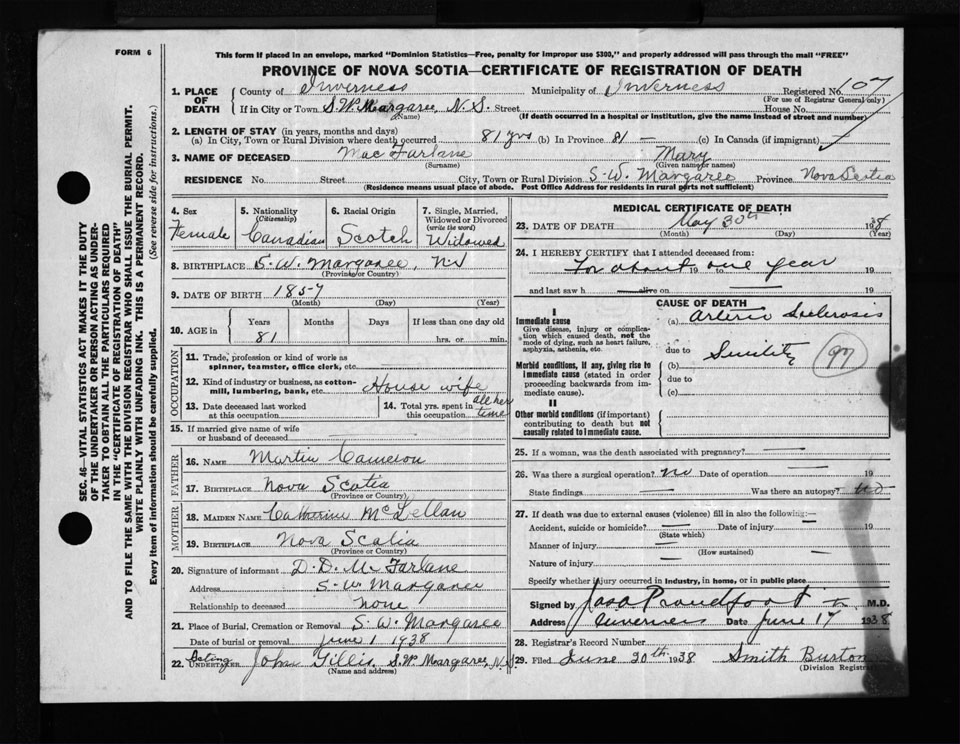 FORM 6
This form if placed in an envelope, marked "Dominion Statistics—Free, penalty for improper use $300," and properly addressed will pass through the mail "FREE"
PROVINCE OF NOVA SCOTIA—CERTIFICATE OF REGISTRATION OF DEATH
SEC. 46—VITAL STATISTICS ACT MAKES IT THE DUTY
OF THE UNDERTAKER OR PERSON ACTING AS UNDER-
TAKER TO OBTAIN ALL THE PARTICULARS REQUIRED
IN THE "CERTIFICATE OF REGISTRATION OF DEATH"
AND TO FILE THE SAME WITH THE DIVISION REGISTRAR WHO SHALL ISSUE THE BURIAL PERMIT.
WRITE PLAINLY WITH UNFADING INK. THIS IS A PERMANENT RECORD.
Every item of information should be carefully supplied. (See reverse side for instructions.)
1. PLACE OF DEATH
County of Inverness Municipality of Inverness Registered No. 607
(For use of Registrar General only)
If in City or Town S.W. Margaree, N.S. Street House No.
(Name) (If death occurred in a hospital or institution, give the name instead of street and number)
2. LENGTH OF STAY (in years, months and days)
(a) In City, Town or Rural Division where death occurred 81 yrs (b) In Province 81 — (c) In Canada (if immigrant)
3. NAME OF DECEASED MacFarlane Mary
(Surname) (Given name or names)
RESIDENCE No. Street City, Town or Rural Division S.W. Margaree Province Nova Scotia
(Residence means usual place of abode. Post Office Address for residents in rural parts not sufficient)
4. Sex
Female
5. Nationality
(Citizenship)
Canadian
6. Racial Origin
Scotch
7. Single, Married,
Widowed or Divorced
(write the word)
Widowed
8. BIRTHPLACE S.W. Margaree, NS
(Province or Country)
9. DATE OF BIRTH 1857
(Month) (Day) (Year)
10. AGE in
Years Months Days If less than one day old
81 hrs. or min.
OCCUPATION
11. Trade, profession or kind of work as
spinner, teamster, office clerk, etc.
12. Kind of industry or business, as cotton-
mill, lumbering, bank, etc. House wife
13. Date deceased last worked
at this occupation
14. Total yrs. spent in
this occupation all her time
15. If married give name of wife
or husband of deceased
FATHER
16. NAME Martin Cameron
17. BIRTHPLACE Nova Scotia
(Province or Country)
MOTHER
18. MAIDEN NAME Catherine McLellan
19. BIRTHPLACE Nova Scotia
(Province or Country)
20. Signature of informant D.D. McFarlane
Address S.W. Margaree
Relationship to deceased None
21. Place of Burial, Cremation or Removal S.W. Margaree
Date of burial or removal June 1 1938
22. Acting UNDERTAKER John Gillis S.W. Margaree, N.S.
(Name and address)
MEDICAL CERTIFICATE OF DEATH
23. DATE OF DEATH May 30th 1938
(Month) (Day) (Year)
24. I HEREBY CERTIFY that I attended deceased from:
For about 19 one year 19
and last saw h alive on 19
CAUSE OF DEATH
I
Immediate cause
Give disease, injury or complica-
tion which caused death, not the
mode of dying, such as heart failure,
asphyxia, asthenia, etc.
(a) Arterio Sclerosis
due to
Morbid conditions, if any, giving rise to
immediate cause (stated in order
proceeding backwards from im-
mediate cause).
(b) Senility 97
due to
(c)
II
Other morbid conditions (if important)
contributing to death but not
causally related to immediate cause.
25. If a woman, was the death associated with pregnancy? —
26. Was there a surgical operation? no Date of operation — 19
State findings — Was there an autopsy? no
27. If death was due to external causes (violence) fill in also the following:—
Accident, suicide or homicide? — Date of injury — 19
(State which)
Manner of injury —
(How sustained)
Nature of injury —
Specify whether injury occurred in industry, in home, or in public place
Signed by Jas A Proudfoot M.D.
Address Inverness Date June 17 1938
28. Registrar's Record Number
29. Filed June 20th 1938 Smith Burton
(Division Registrar)